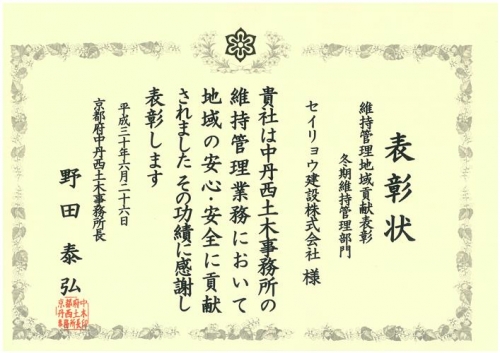 表彰状
維持管理地域貢献表彰
冬期維持管理部門
セイリョウ建設株式会社 様
貴社は中丹西土木事務所の
維持管理業務において
地域の安心・安全に貢献
されました その功績に感謝し
表彰します
平成三十年六月二十六日
京都府中丹西土木事務所長
野田泰弘